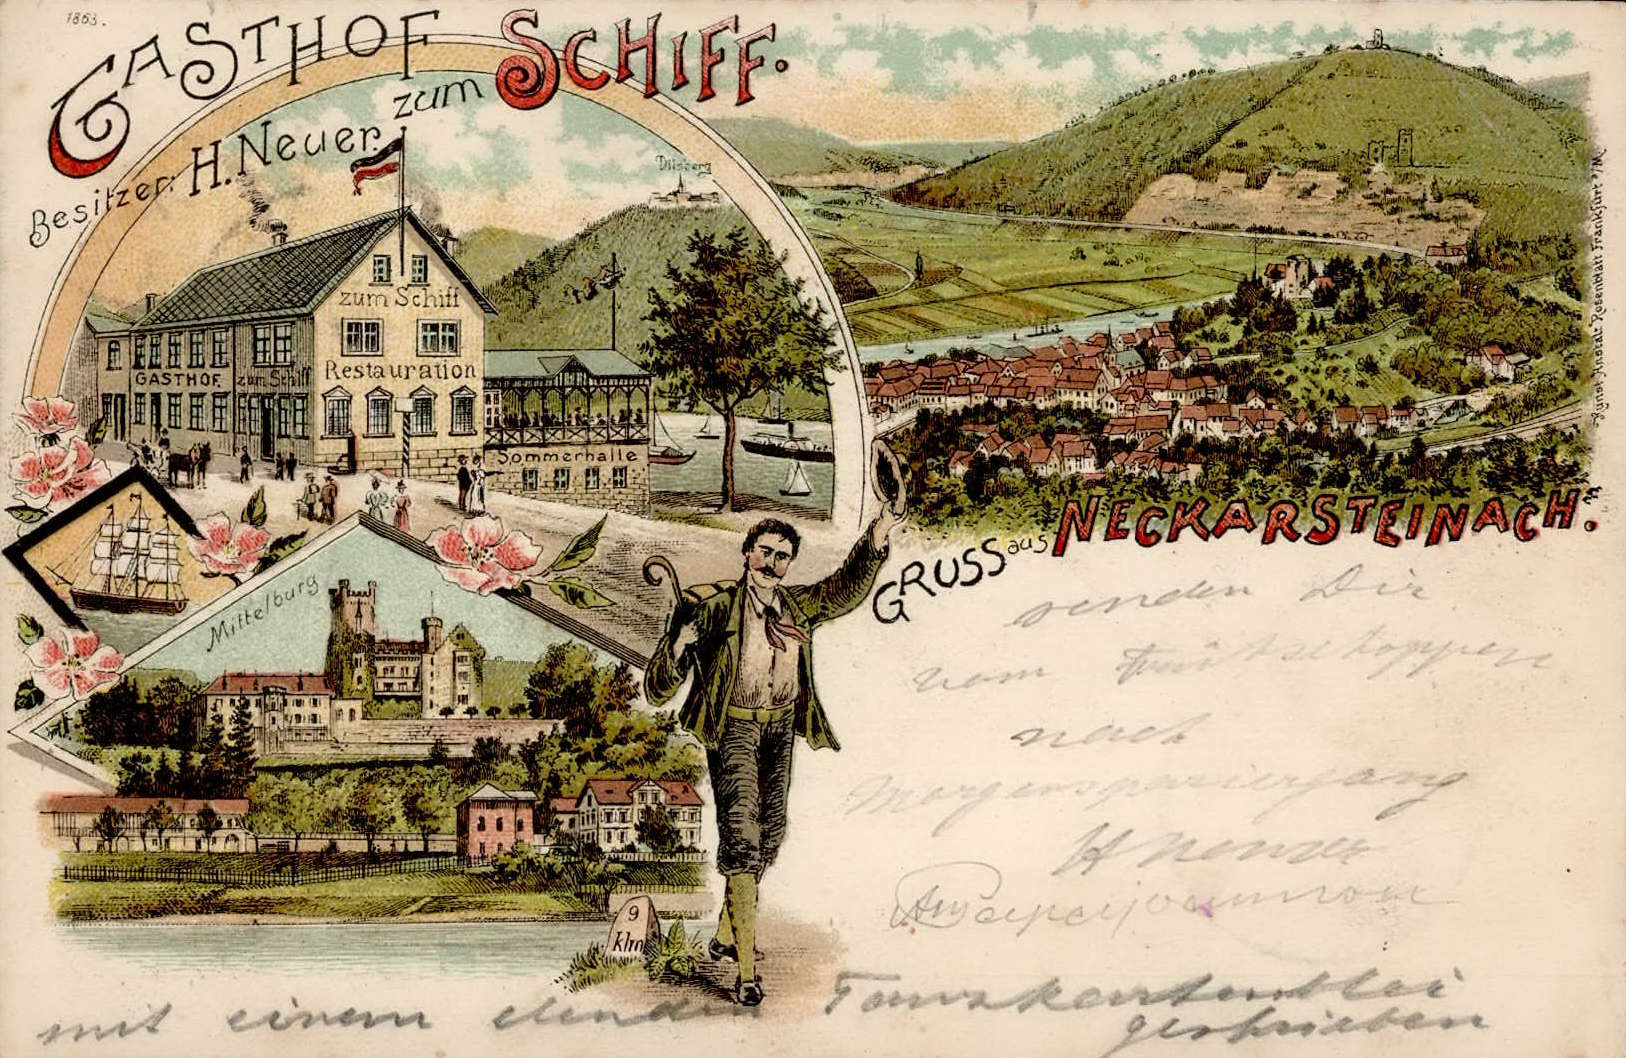 1863.
GASTHOF
zum SCHIFF.
Besitzer: H. Neuer.
Dilsberg
zum Schiff
Restauration
GASTHOF zum Schiff
Sommerhalle
Kunst-Anstalt Rosenblatt Frankfurt a/M.
GRUSS aus NECKARSTEINACH.
Mittelburg
9
klm
senden Dir
vom Frühschoppen
nach
Morgenspaziergang
H
mit einem elenden
geschrieben